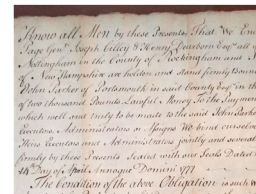 Know all Men by these Presents, That We En
Page Gent Joseph Cilley & Henry Dearborn Esqrs all of
Nottingham in the County of Rockingham and
of New Hampshire are holden and stand firmly Bound
John Parker of Portsmouth in said County Esqr in the
of two thousand Pounds Lawful Money To the Payment
which well and truly to be made to the said John Parker
Executors, Administrators or Assigns We bind ourselves
Heirs Executors and Administrators jointly and several
firmly by these Presents Sealed with our Seals Dated
24th Day of April Annoque Domini 1777
The Condition of the above Obligation is such